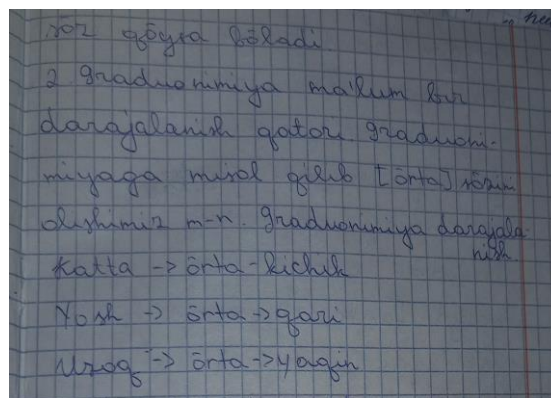 söz qöysa böladi.
2. graduonimiya ma'lum bir
darajalanish qatori. graduoni-
miyaga misol qilib [örta] sözini
olishimiz m-n. graduonimiya darajala
nish.
Katta -> örta - kichik
Yosh -> örta -> qari
Uzoq -> örta -> yaqin